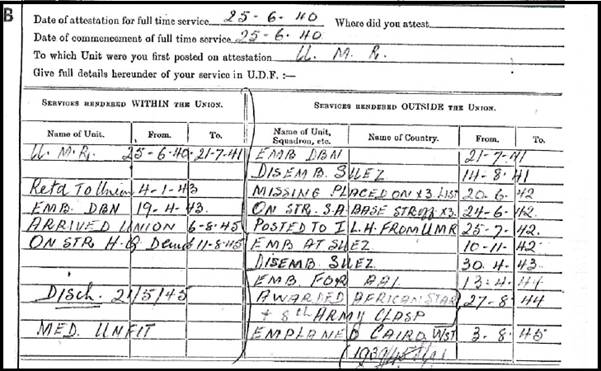 B
Date of attestation for full time service 25-6-40 Where did you attest
Date of commencement of full time service 25-6.40
To which Unit were you first posted on attestation U. M. R.
Give full details hereunder of your service in U.D.F. :—
SERVICES RENDERED WITHIN THE UNION. SERVICES RENDERED OUTSIDE THE UNION.
Name of Unit. From. To. Name of Unit, Squadron, etc. Name of Country. From. To.
U. M. R. 25-6-40 21-7-41 EMB DBN 21-7-41
DISEMB. SUEZ 14-8-41
Retd To Union 4-1-43 MISSING PLACED ON X3 LIST 20-6-42
EMB. DBN 19-4-43. ON STR. S.A. BASE X3. 24-6-42.
ARRIVED UNION 6-8-45 POSTED TO I.L.H. FROM UMR 25-7-42.
ON STR H.Q 11-8-45 EMB AT SUEZ 10-11-42
DISEMB. SUEZ 30.4-43.
EMB FOR 13-4-44
Disch. 21/5/45 AWARDED AFRICAN STAR 27-8-44
+ 8th ARMY CLASP
MED. UNFIT EMPLANED CAIRO W/ST 3-8-45